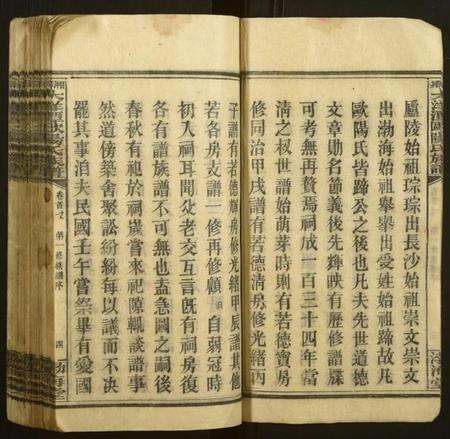 盧陵始祖琮琮出長沙始祖崇文崇文
出渤海始祖舉舉出受姓始祖蹄故凡
歐陽氏皆蹄公之後也凡夫先世道德
文章勛名節義後先輝映有歷修譜牒
可考無再贅焉祠成一百三十四年當
清之叔世譜始萌芽時則有若德寶房
修同治甲戌譜有若德淸房修光緒丙
子譜有若德輝房修光緒甲辰譜其他
若各房支譜一修再修顧 自弱冠時
初入祠耳聞父老交互言既有祠房復
各有譜族譜不可無也盍急圖之嗣後
春秋有祀於祠歲嘗來祀隙輒談譜事
然道傍築舍聚訟紛紛每以議而不决
罷其事洎夫民國壬午嘗祭畢有愛國
歐陽氏族譜
卷首之 第一修族譜序
四